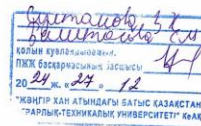 қолын куәландырамын.
ПЖК басқармасының басшысы
20 24 ж. «27» 12
"ЖӘҢГІР ХАН АТЫНДАҒЫ БАТЫС ҚАЗАҚСТАН
АГРАРЛЫҚ-ТЕХНИКАЛЫҚ УНИВЕРСИТЕТІ" КеАҚ